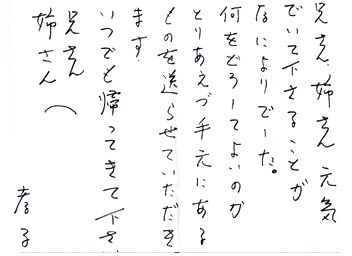 兄さん、姉さん元気
でいて下さることが
なによりでした。
何をどうしてよいのか
とりあえづ手元にある
ものを送らせていただき
ます
いつでも帰ってきて下さ
兄さん
姉さん
孝子